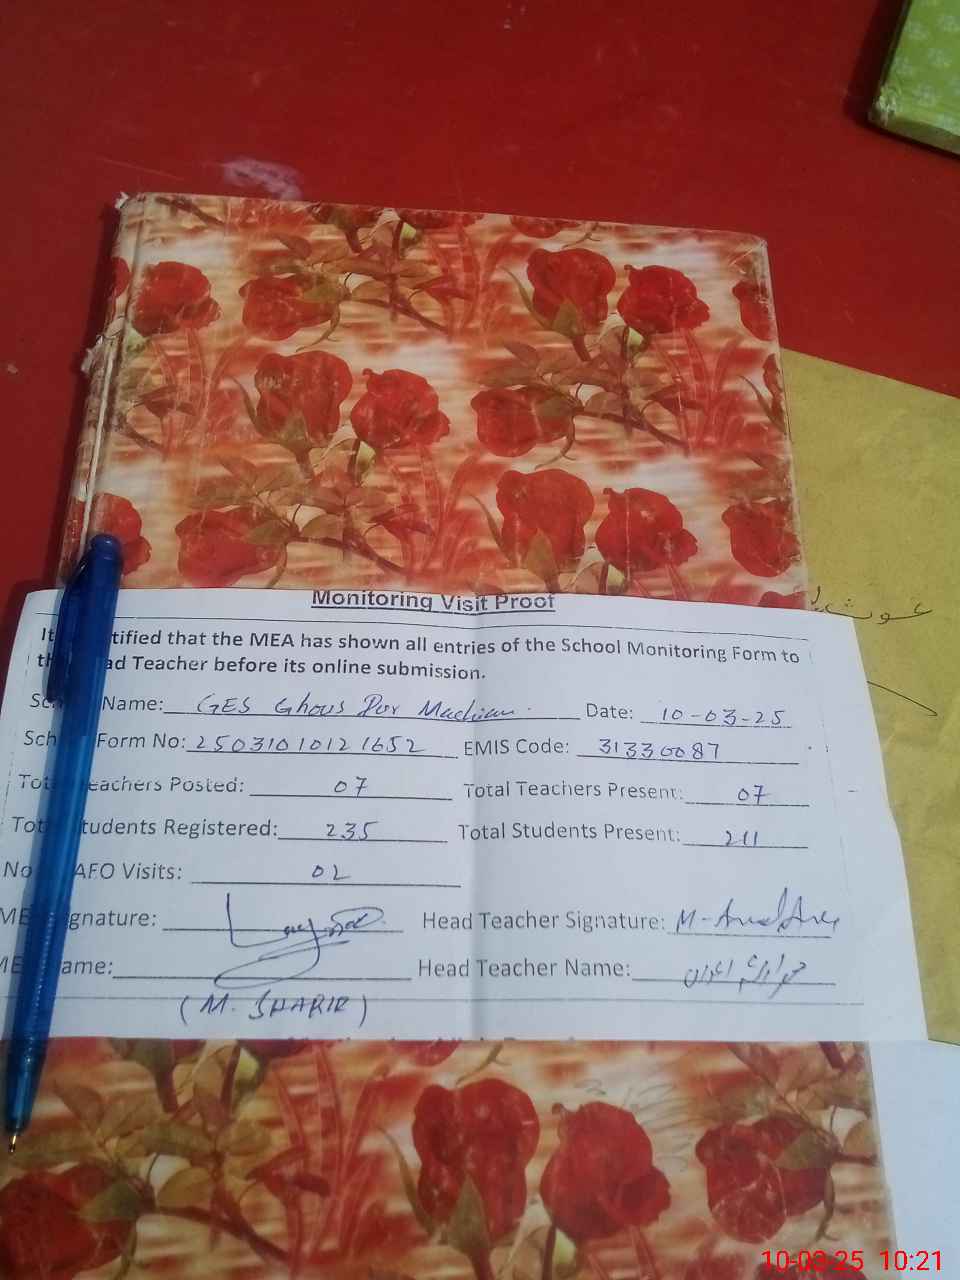 Monitoring Visit Proof
It tified that the MEA has shown all entries of the School Monitoring Form to
th ad Teacher before its online submission.
Sch Name: GES Ghous Pur Machian. Date: 10-03-25
Sch Form No: 2503101012 1652 EMIS Code: 31330087
Tot eachers Posted: 07 Total Teachers Present: 07
Tot tudents Registered: 235 Total Students Present: 211
No AEO Visits: 02
ME gnature: Head Teacher Signature: M-
ME ame: Head Teacher Name:
(M. SHARIF)
غوث
10-03-25 10:21